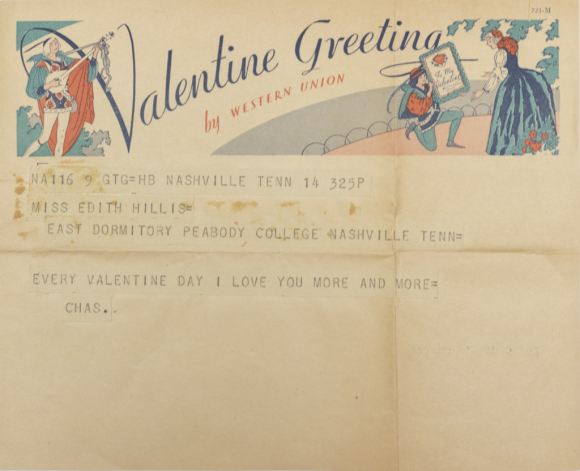 721-M
Valentine Greeting
by WESTERN UNION
To My Valentine
NA116 9 GTG=HB NASHVILLE TENN 14 325P
MISS EDITH HILLIS=
EAST DORMITORY PEABODY COLLEGE NASHVILLE TENN=
EVERY VALENTINE DAY I LOVE YOU MORE AND MORE=
CHAS..